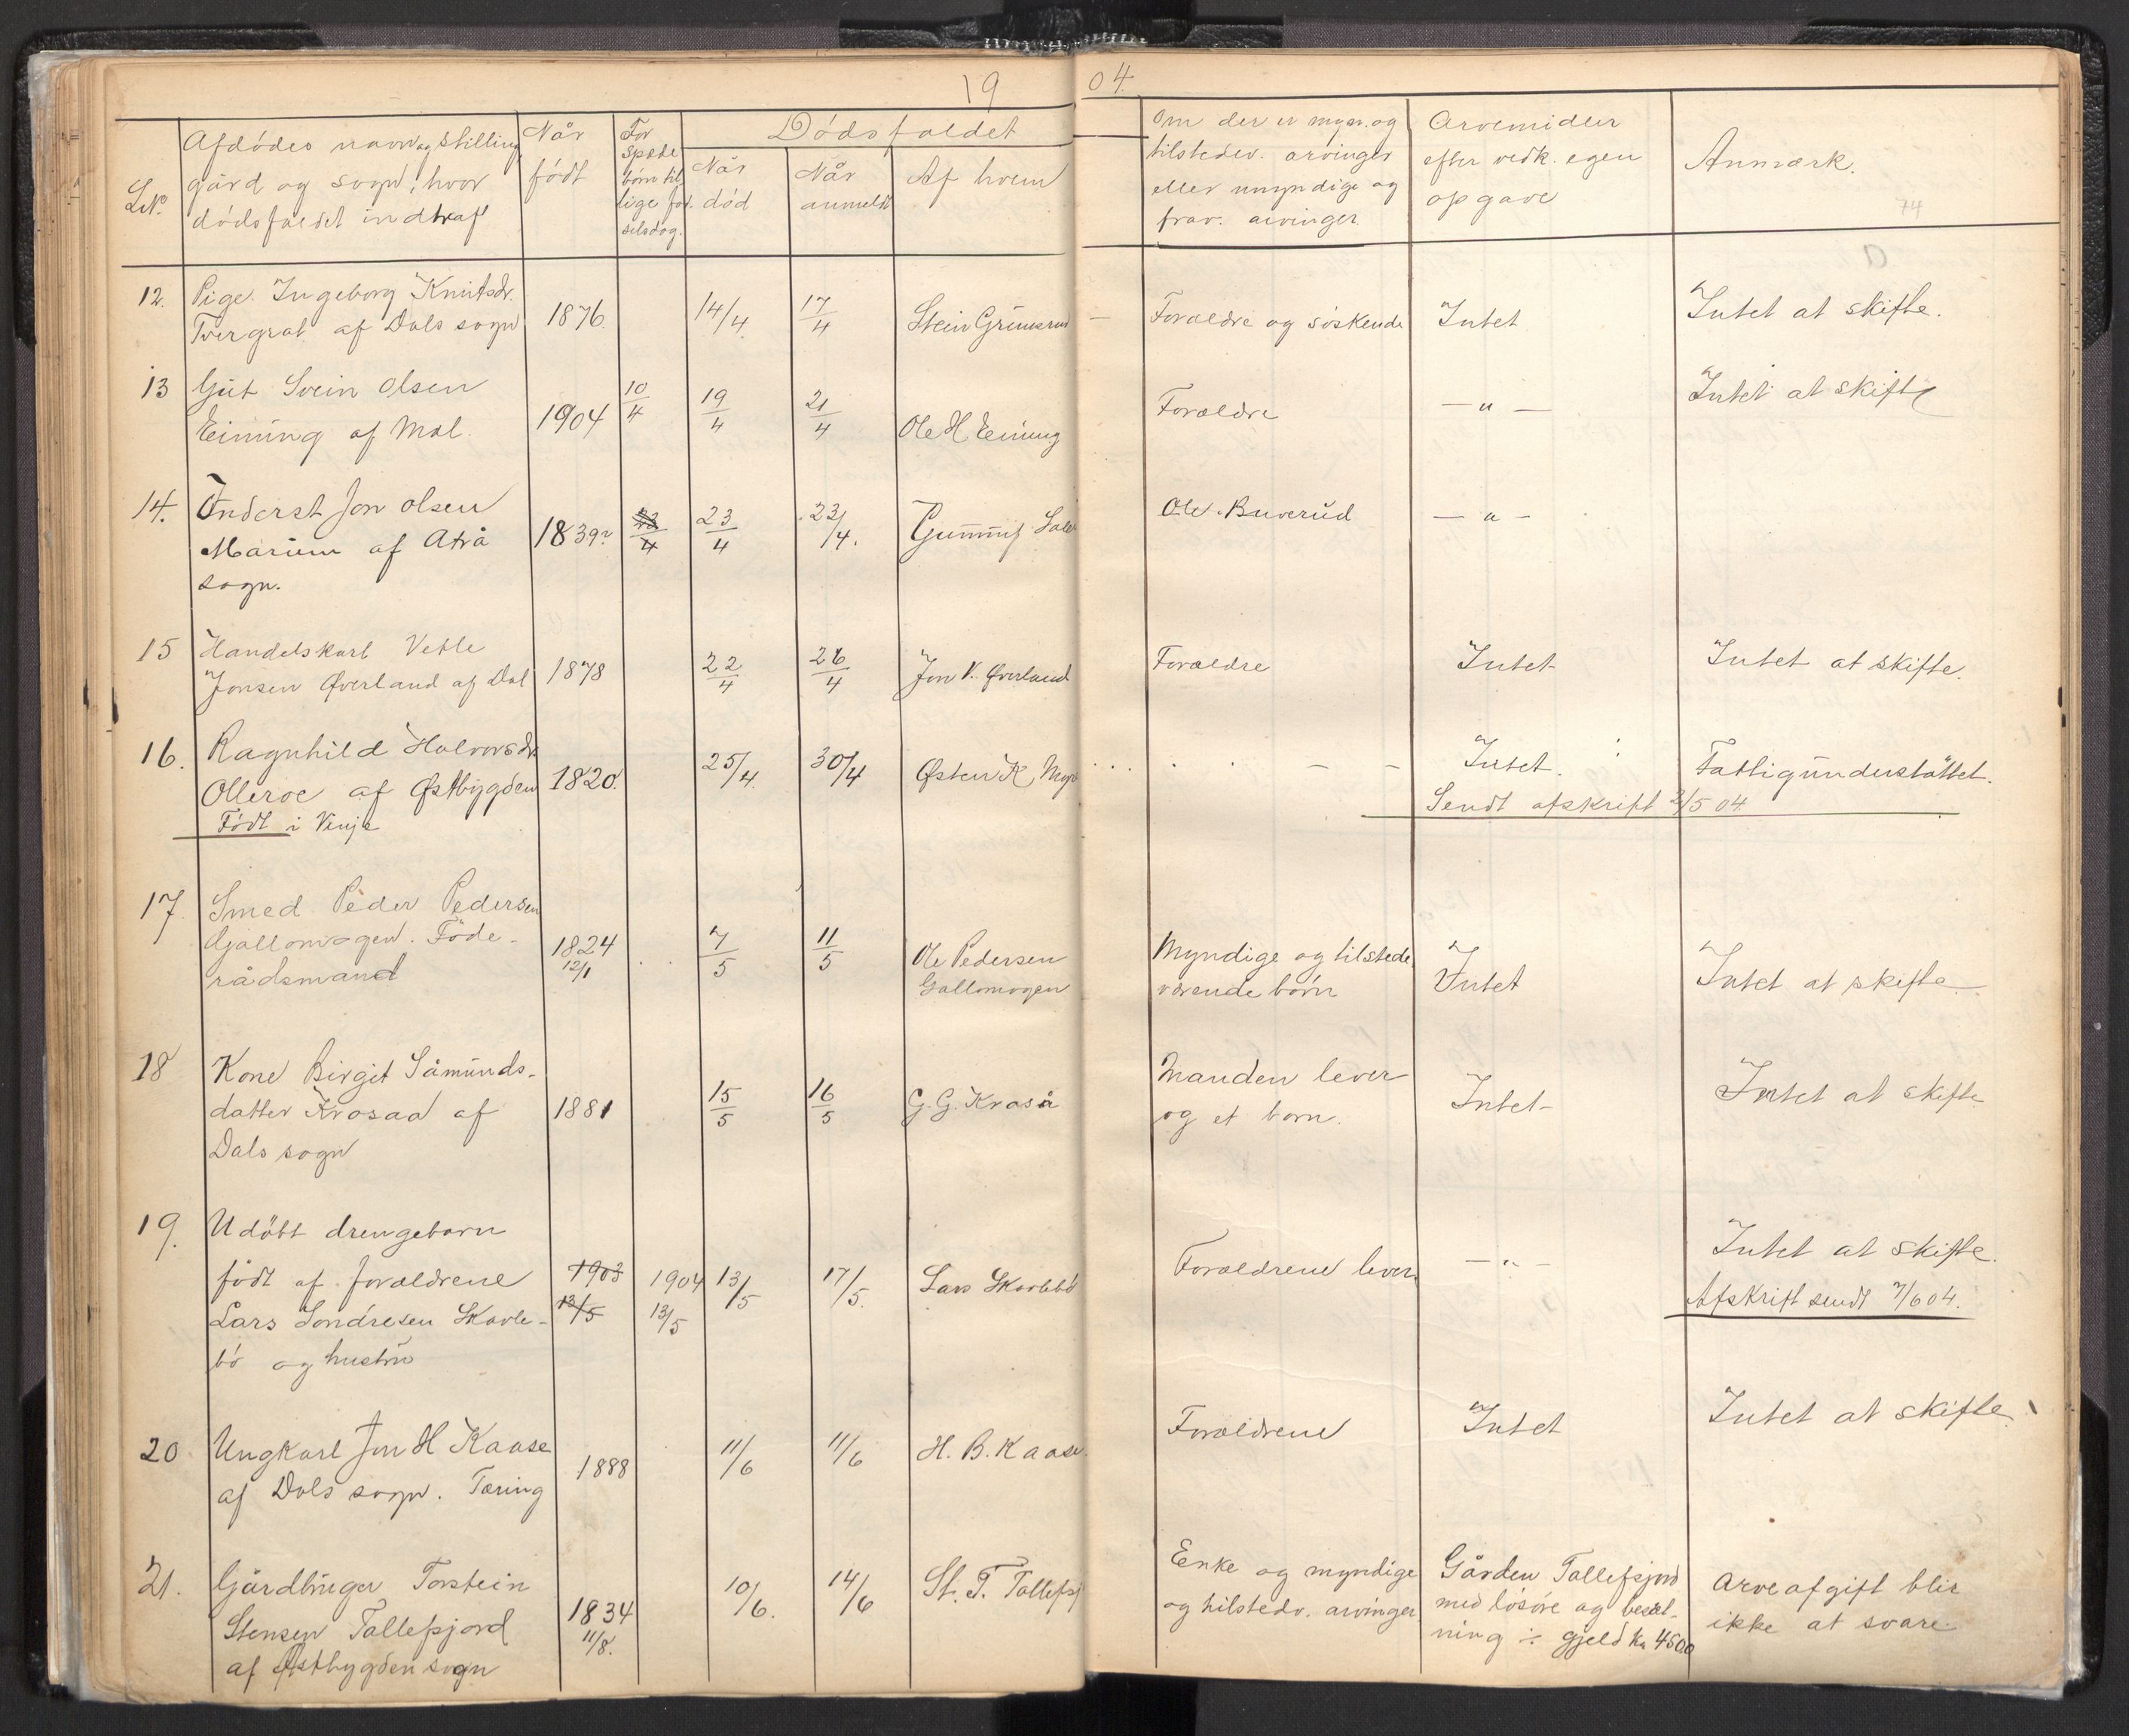 19 04.
LNº
Afdödes navn og stilling,
gård og sogn, hvor
dödsfaldet indtraf
Når
født
For
spæde
børn til
lige fød
selsdag.
Dödsfaldet
Når
død
Når
anmeldt
Af hvem
Om der er mynd. og
tilstedev. arvinger
eller umyndige og
frav. arvinger
Arvemidler
efter vedk. egen
opgave
Anmærk.
74
12. Pige. Ingeborg Knutsdr.
Tvergrot af Dals sogn 1876. 14/4. 17/4 Stein Grimsrud Forældre og söskende Intet Intet at skifte.
13 Gut Svein Olsen
Eining af Mæl. 1904 10/4 19/4 21/4 Ole H Eining Forældre — " — Intet at skifte
14. Inderst Jon Olsen
Marium af Atrå
sogn. 1839? 23/4 23/4 23/4. Ole Buverud — " —
15 Handelskarl Vetle
Jonsen Øverland af Dal 1878 22/4 26/4 Jon V. Øverland Forældre Intet Intet at skifte.
16. Ragnhild Halvorsdr.
Olleroe af Østbygden 1820. 25/4. 30/4 Østen K Intet. Fattigunderstöttet.
Födt i Vinje Sendt afskrift 2/5 04
17. Smed Peder Pedersen
Gjallomogen. Föde-
rådsmand 1824
12/1 7/5 11/5 Ole Pedersen
Gallomogen Myndige og tilstede
værende börn Intet Intet at skifte
18 Kone Birgit Såmunds-
datter Krosaa af
Dals sogn 1881 15/5 16/5 G. G. Kraså Manden lever
og et barn. Intet Intet at skifte
19. Udöbt drengebarn
födt af forældrene
Lars Sondresen Skarle-
bö og hustru 1903
13/5 1904
13/5 13/5 17/5. Lars Skarlebö Forældrene lever. — " — Intet at skifte.
Afskrift sendt 7/6 04.
20 Ungkarl Jon H Kaase
af Dals sogn. Tæring 1888 11/6 11/6 H. B. Kaase. Forældrene Intet Intet at skifte.
21. Gårdbruger Torstein
Stensen Tollefsjord
af Østbygden sogn 1834
11/8. 10/6. 14/6 St. T. Tollefsj Enke og myndige
og tilstedv. arvinger Gården Tollefsjord
med lösöre og besæt-
ning ÷ gjeld kr 4500 Arveafgift blir
ikke at svare